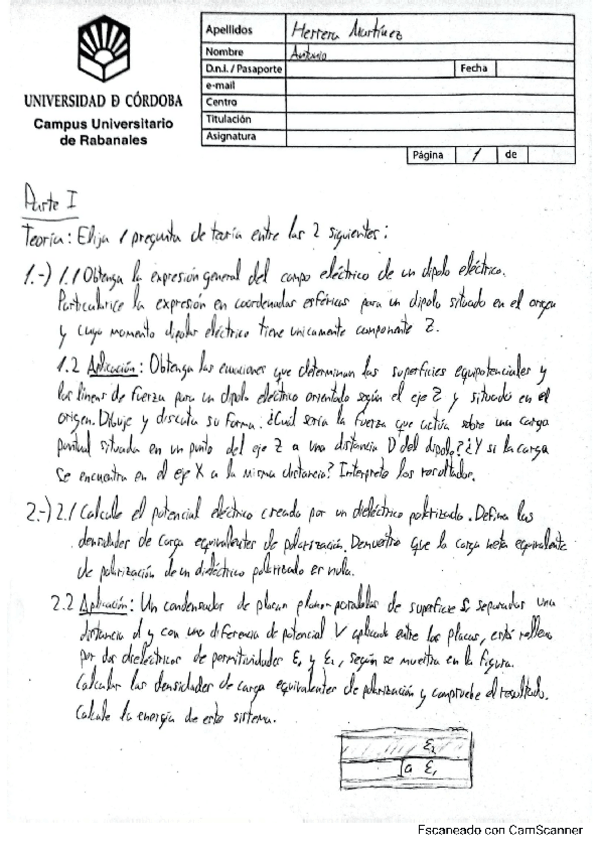 Apellidos Herrera Martínez
Nombre Antonio
D.n.i. / Pasaporte Fecha
e-mail
Centro
Titulación
Asignatura
Página 1 de
UNIVERSIDAD D CÓRDOBA
Campus Universitario
de Rabanales
Parte I
Teoría: Elija 1 pregunta de teoría entre las 2 siguientes:
1.-) 1.1 Obtenga la expresión general del campo eléctrico de un dipolo eléctrico.
Particularice la expresión en coordenadas esféricas para un dipolo situado en el origen
y cuyo momento dipolar eléctrico tiene unicamente componente Z.
1.2 Aplicación: Obtenga las ecuaciones que determinan las superficies equipotenciales y
las líneas de fuerza para un dipolo eléctrico orientado según el eje Z y situado en el
origen. Dibuje y discuta su forma. ¿Cuál sería la fuerza que actúa sobre una carga
puntual situada en un punto del eje Z a una distancia D del dipolo? ¿Y si la carga
se encuentra en el eje X a la misma distancia? Interprete los resultados.
2.-) 2.1 Calcule el potencial eléctrico creado por un dieléctrico polarizado. Defina las
densidades de carga equivalentes de polarización. Demuestre que la carga neta equivalente
de polarización de un dieléctrico polarizado es nula.
2.2 Aplicación: Un condensador de placas plano-paralelas de superficie S, separadas una
distancia d y con una diferencia de potencial V aplicado entre las placas, está relleno
por dos dieléctricos de permitividades ε1 y ε2, según se muestra en la figura.
Calcular las densidades de carga equivalentes de polarización y compruebe el resultado.
Calcule la energía de este sistema.
ε2
a ε1
Escaneado con CamScanner